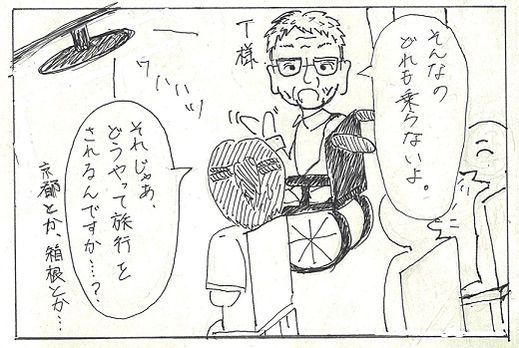 そんなの
どれも乗らないよ。
T様
ワハハハッ
それじゃあ、
どうやって旅行を
されるんですか…？
京都とか、箱根とか…